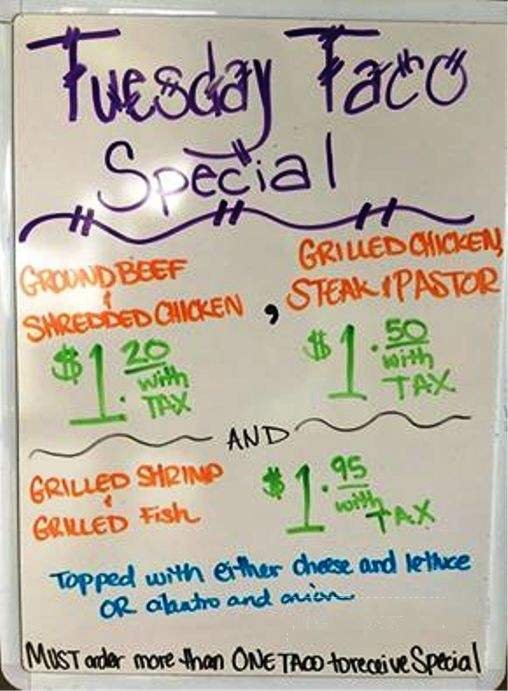 Tuesday Taco
Special
GROUND BEEF
&
SHREDDED CHICKEN
$1.20
with
TAX
,
GRILLED CHICKEN,
STEAK & PASTOR
$1.50
with
TAX
AND
GRILLED SHRIMP
&
GRILLED Fish
$1.95
with
TAX
Topped with either cheese and lettuce
OR cilantro and onion
MUST order more than ONE TACO to receive Special